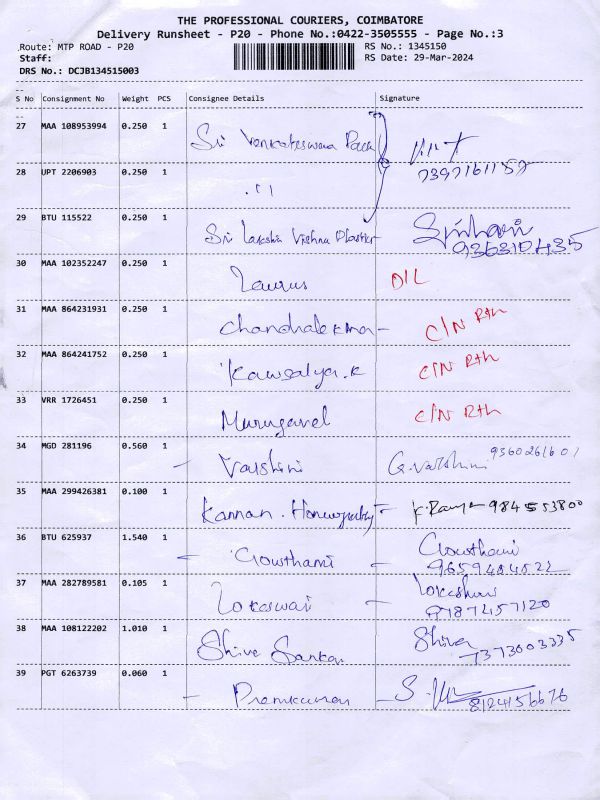 THE PROFESSIONAL COURIERS, COIMBATORE
Delivery Runsheet - P20 - Phone No.:0422-3505555 - Page No.:3
Route: MTP ROAD - P20
RS No.: 1345150
Staff:
RS Date: 29-Mar-2024
DRS No.: DCJB134515003
S No Consignment No Weight PCS Consignee Details Signature
27 MAA 108953994 0.250 1 Sri Venkateswara
28 UPT 2206903 0.250 1
29 BTU 115522 0.250 1 Sri Vishnu
9363810435
30 MAA 102352247 0.250 1 Taurus D/L
31 MAA 864231931 0.250 1 C/N Rth
32 MAA 864241752 0.250 1 Kawsalya.K C/N Rth
33 VRR 1726451 0.250 1 Murugavel C/N Rth
34 MGD 281196 0.560 1 Varshini G. Varshini
35 MAA 299426381 0.100 1 Kannan
36 BTU 625937 1.540 1 Gowthami Gowthami
37 MAA 282789581 0.105 1
9787457120
38 MAA 108122202 1.010 1 Shiva Sankar Shiva
7373003335
39 PGT 6263739 0.060 1 Premkumar
8124156676